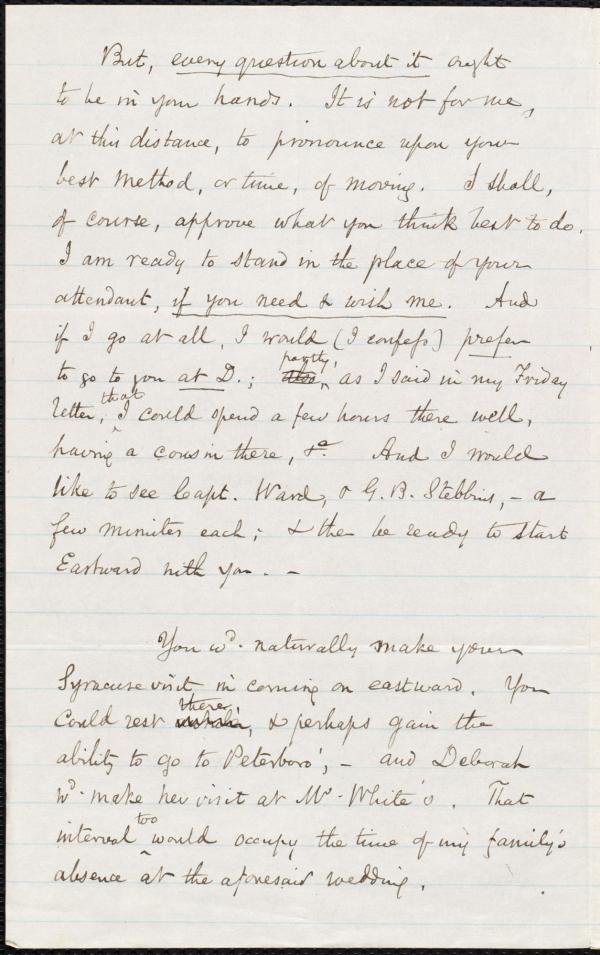 But, every question about it ought
to be in your hands. It is not for me,
at this distance, to pronounce upon your
best method, or time, of moving. I shall,
of course, approve what you think best to do.
I am ready to stand in the place of your
attendant, if you need & wish me. And
if I go at all, I would (I confess) prefer
partly,
to go to you at D.; also, as I said in my Friday
that
letter, ^ I could spend a few hours there well,
having a cousin there, &c. And I would
like to see Capt. Ward, & G. B. Stebbins, – a
few minutes each; & then be ready to start
Eastward with you. –
You wd. naturally make your
Syracuse visit in coming on eastward. You
there
could rest , & perhaps gain the
ability to go to Peterboro'; – and Deborah
wd. make her visit at Mr. White's. That
too
interval ^ would occupy the time of my family's
absence at the aforesaid wedding.